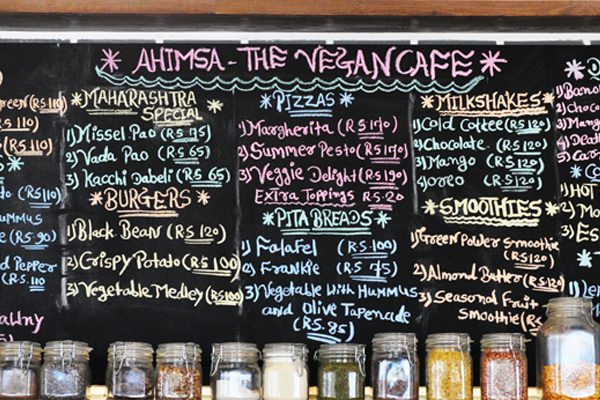 AHIMSA - THE VEGAN CAFE
(RS 110)
RS 110)
(RS 110)
(RS 110)
(RS 90)
Pepper
(RS 110
MAHARASHTRA
SPECIAL
1) Missel Pao (RS 75)
2) Vada Pao (RS 65)
3) Kacchi Dabeli (RS 65)
BURGERS
1) Black Bean (RS 120)
2) Crispy Potato (RS 100)
3) Vegetable Medley (RS 100)
PIZZAS
1) Margherita (RS 170)
2) Summer Pesto (RS 170)
3) Veggie Delight (RS 190)
Extra Toppings RS 20
PITA BREADS
1) Falafel (RS 100)
2) Frankie (RS 75)
3) Vegetable with Hummus
and Olive Tapenade
(RS.85)
MILKSHAKES
1) Cold Coffee (RS 120)
2) Chocolate. (RS 120)
3) Mango (RS 120)
4) Oreo (RS 120)
SMOOTHIES
1) Green Power Smoothie
(RS 120)
2) Almond Butter (RS 120)
3) Seasonal Fruit
Smoothie (RS
1)
2)
3)
4)
5)
HOT
2) Mo
3) Es